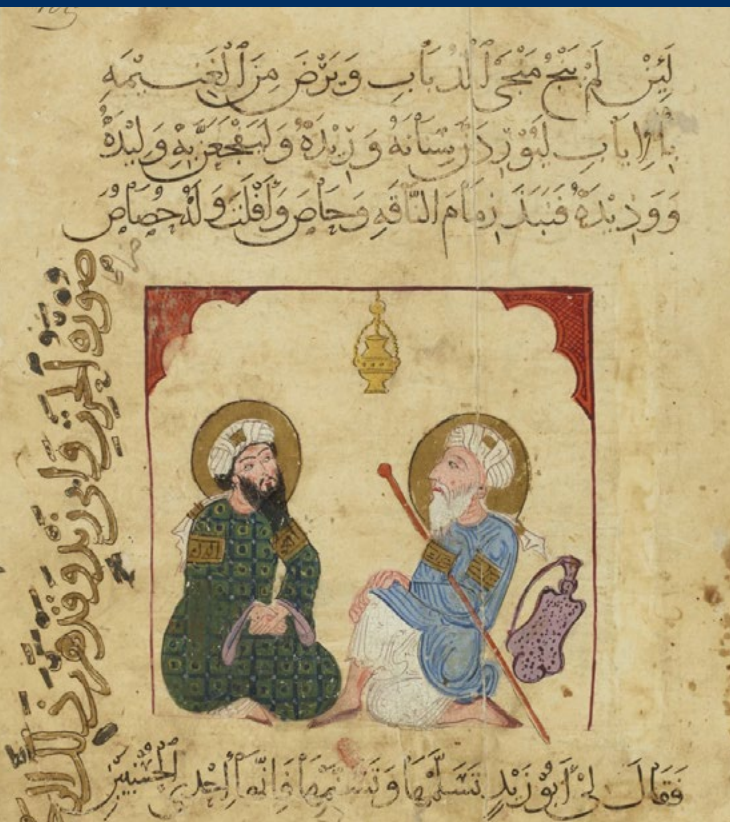 لَئِنْ لَمْ يَنْجُ مَنْجَى الذُّبَابِ وَيَرْضَ مِنَ الْغَنِيمَهِ
بِالْإِيَابِ لَيُوْرِدَنَّ سِنَانَهُ وَرِيْدَهُ وَلَيَفْجَعَنَّ بِهِ وَلِيْدَهُ
وَوَدِيْدَهُ فَنَبَذَ زِمَامَ النَّاقَهِ وَحَاصَ وَأَفْلَتَ وَلَهُ حُصَاصٌ
صورة الحرث وابي زيد وقد
فَقَالَ لِي أَبُوْ زَيْدٍ تَسَلَّمْهَا وَتَسَنَّمْهَا فَإِنَّهَا إِحْدَى الْحُسْنَيَيْنِ